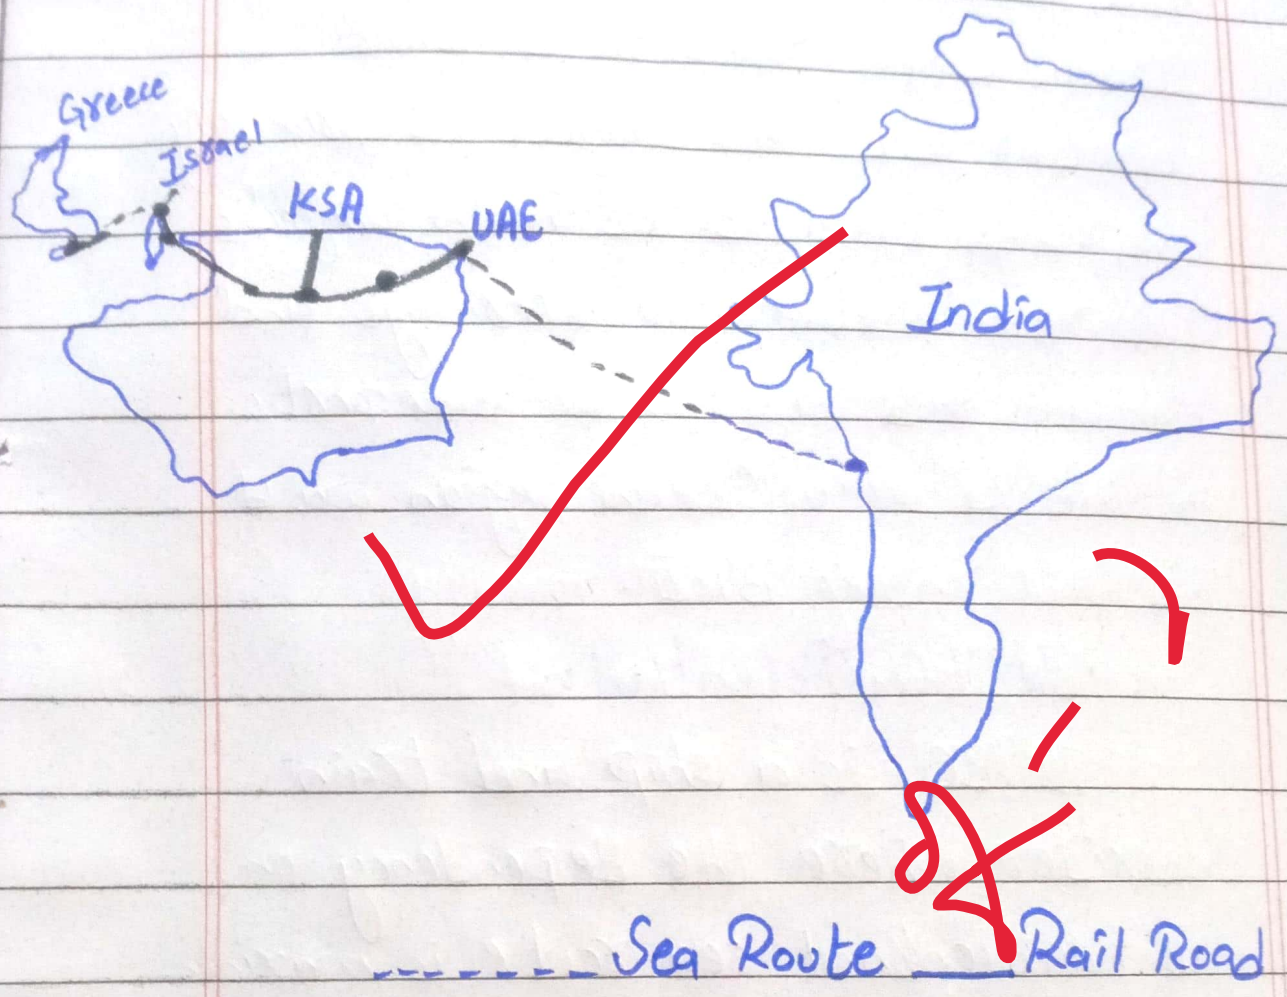 Greece
Israel
KSA
UAE
India
Sea Route
Rail Road